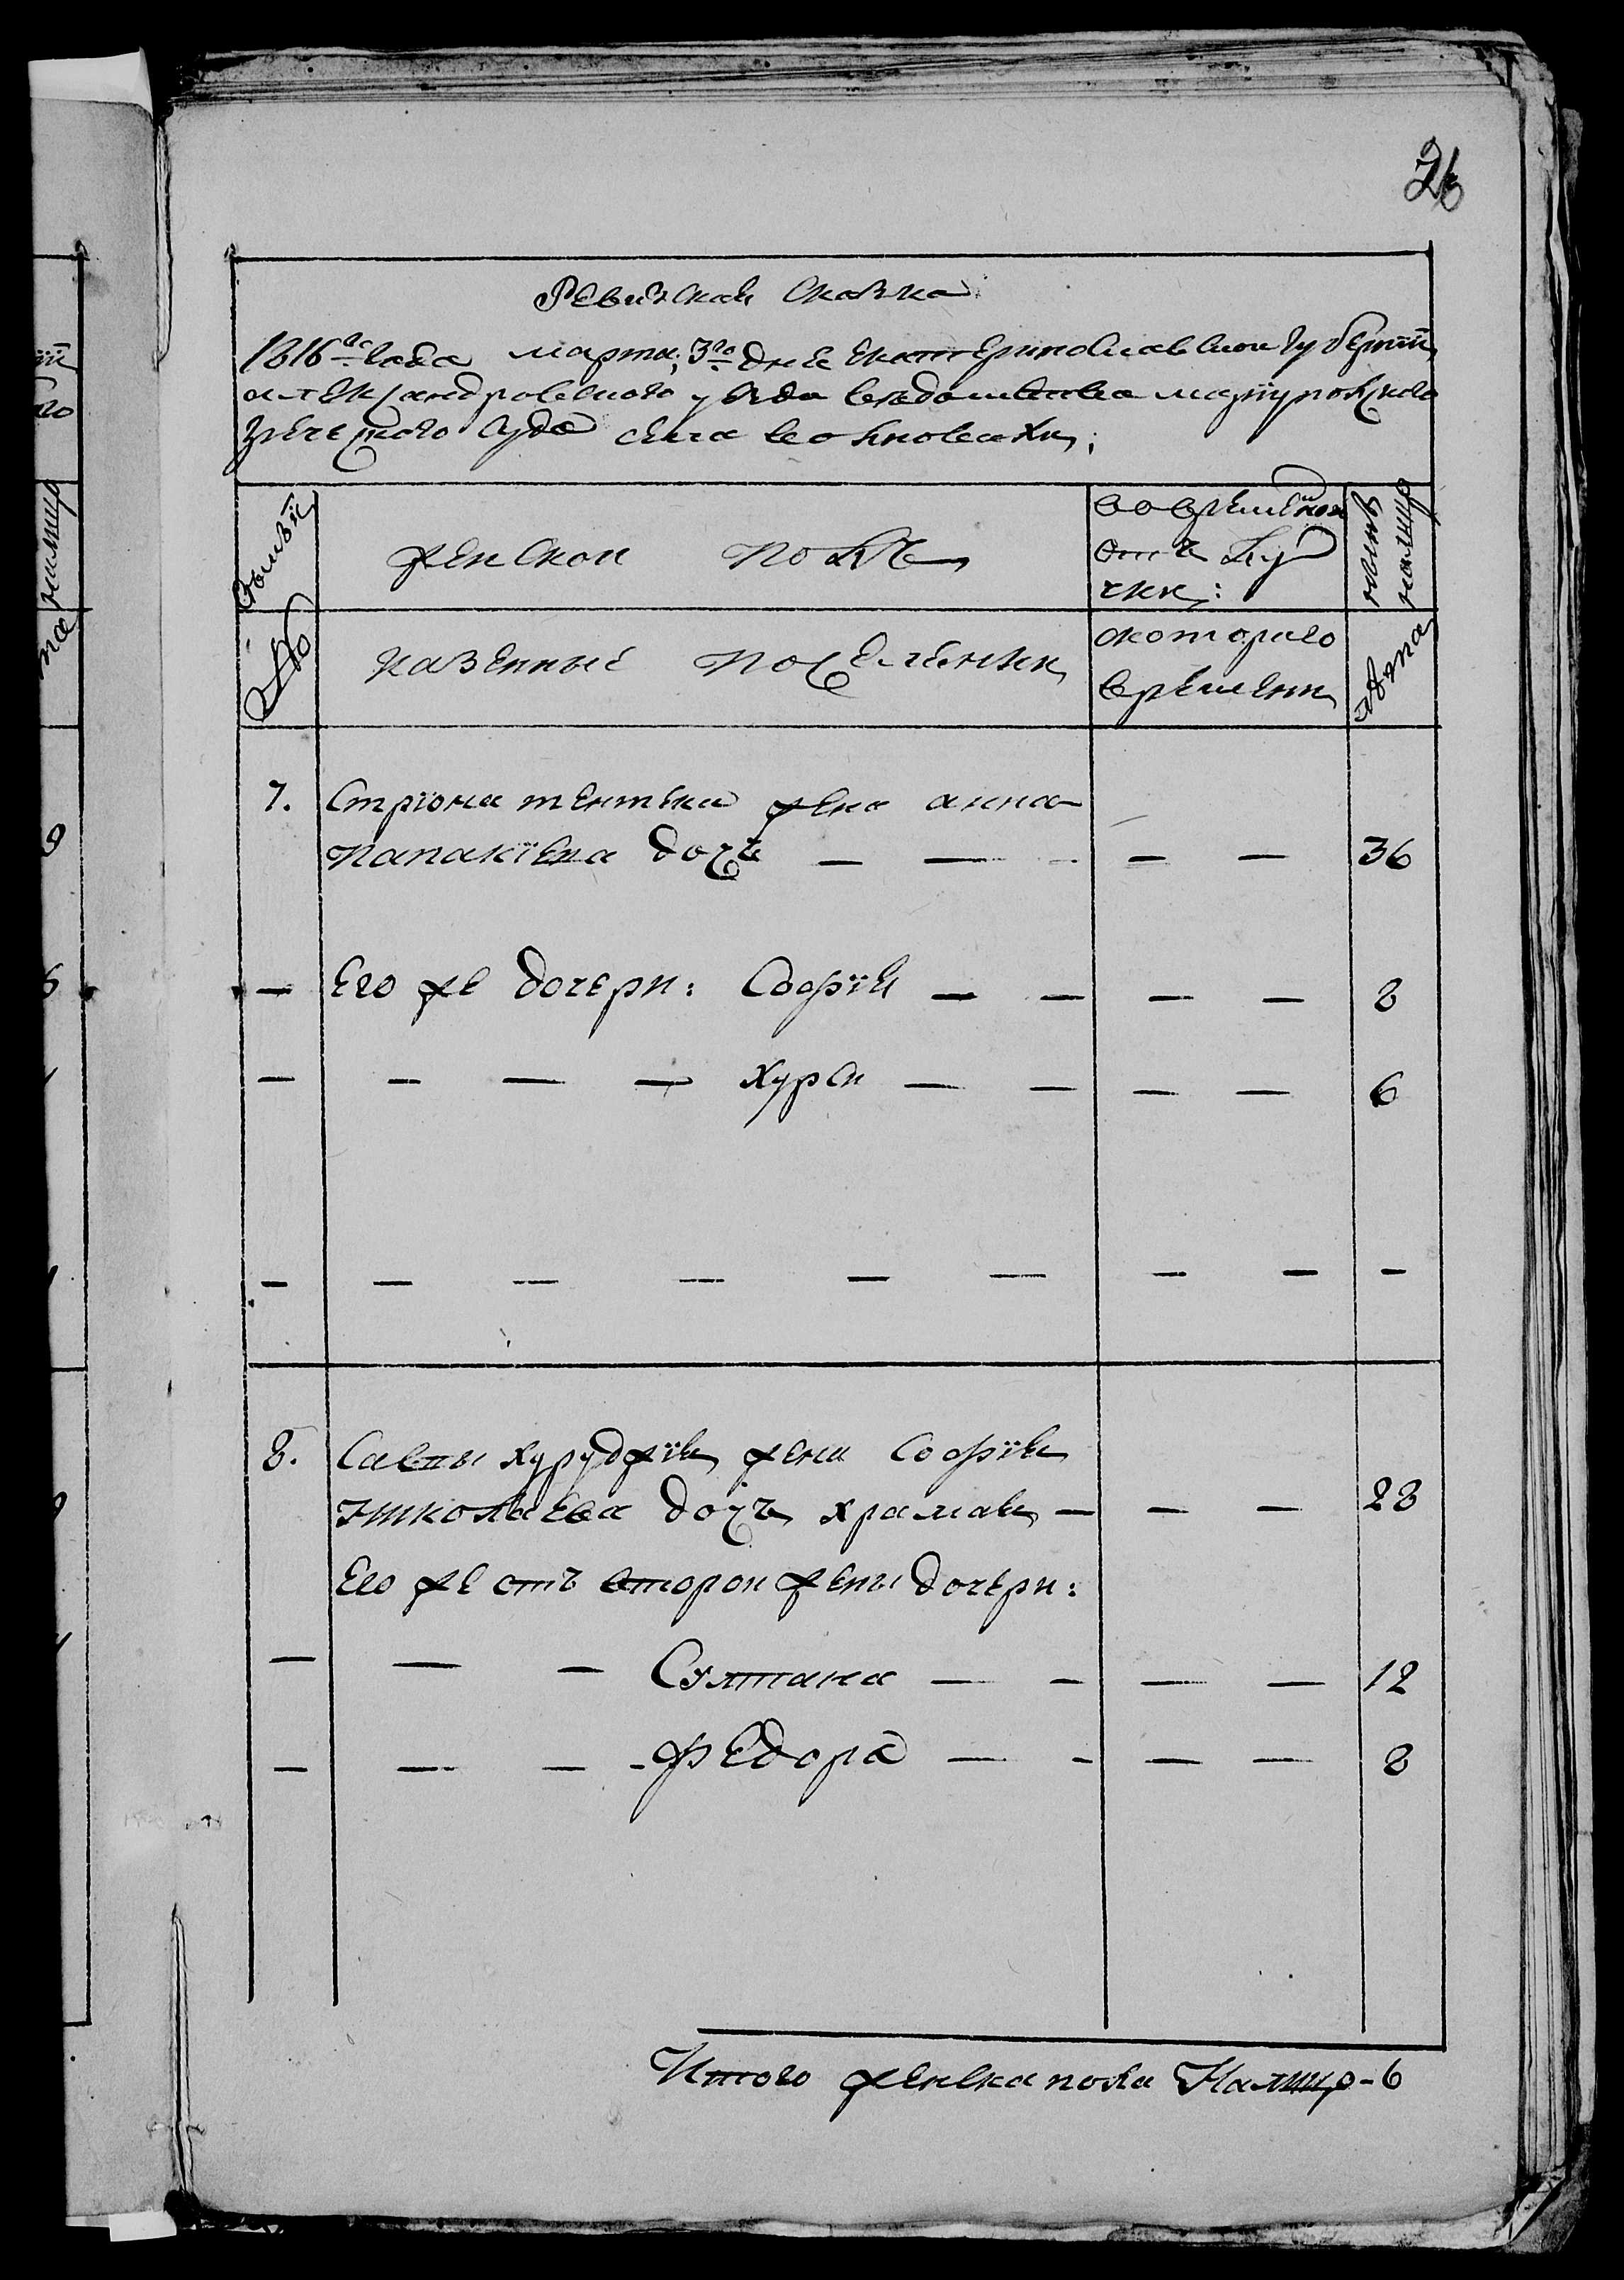 26
Ревизская Сказка
1816го года марта 3го дня Екатеринославской губернїи
александровского уезда ведомства марїупольского
греческого суда села
Семьи
женской полъ
во временной
отлу
чки:
ныне
налицо
№
казенные поселянки
скоторого
времени
лета
7. Стрїона тентека жена анна
папакїева дочь — — — — 36
— Его же дочери: Софїя — — — — 8
— — — — хурси — — — — 6
— — — — — — — — —
8. Савы хуруджїи, жена Софїя
николаева дочъ храмаи — — — 28
Его же отъ второи жены дочери:
— — — Султана — — — — 12
— — — Федора — — — — 8
Итого женска пола Налицо - 6